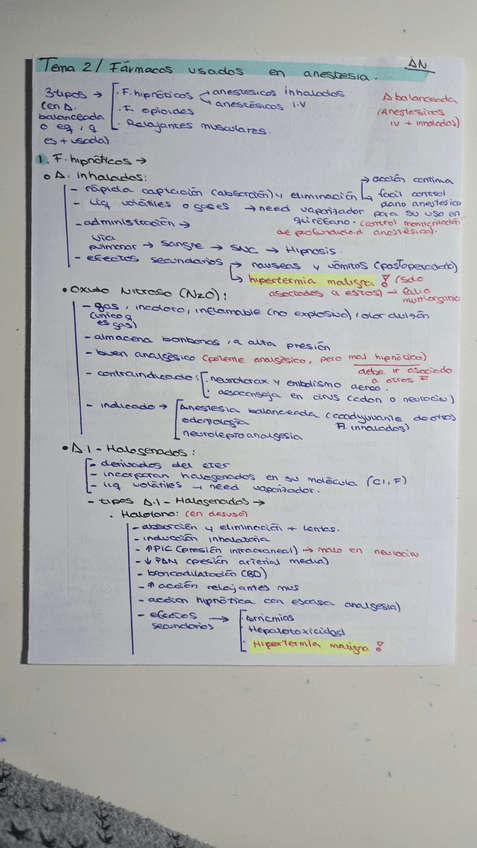 ΔN
Tema 2/ Fármacos usados en anestesia.
3 tipos → · F. hipnóticos → anestésicos inhalados
→ anestésicos I.V
(en Δ. balanceada o eq, q es + usada)
· F. opioides
· Relajantes musculares.
Δ balanceada
(Anestésicos IV + inhalados)
1. F. hipnóticos →
o Δ. Inhalados:
- rápida captación (absorción) y eliminación → acción continua
→ fácil control plano anestésico
- Liq volátiles o gases → need vaporizador para su uso en quirófano. (control monitorización de profundidad anestésica).
- administración →
vía pulmonar → Sangre → SNC → Hipnosis.
- efectos secundarios → nauseas y vómitos (postoperatorio)
→ hipertermia maligna ! (solo asociados a estos) → fallo multiorgánico
• Óxido Nitroso (N2O):
- gas, incoloro, inflamable (no explosivo)
(único q es gas)
- almacena bombonas, a alta presión
- buen analgésico (potente analgésico, pero mal hipnótico)
debe ir asociado a otros F
- contraindicado: · neumotorax y embolismo aereo.
· desaconseja en cirus
- indicado → Anestesia balanceada (coadyuvante de otros A. inhalados)
odontología
neuroleptoanalgesia
• Δ.I - Halogenados:
- derivados del eter
- incorporan halogenados en su molécula (Cl, F)
- Liq volátiles → need vaporizador.
- tipos Δ.I - Halogenados →
· Halotano: (en desuso)
- absorción y eliminación + lentas.
- inducción inhalatoria
- ↑ PIC (presión intracraneal) → malo en neurociru
- ↓ PAM (presión arterial media)
- broncodilatación (BD)
- ↑ acción relajantes mus
- acción hipnótica con escasa analgesia)
- efectos secundarios → · Arritmias
· Hepatotoxicidad
· Hipertermia maligna !